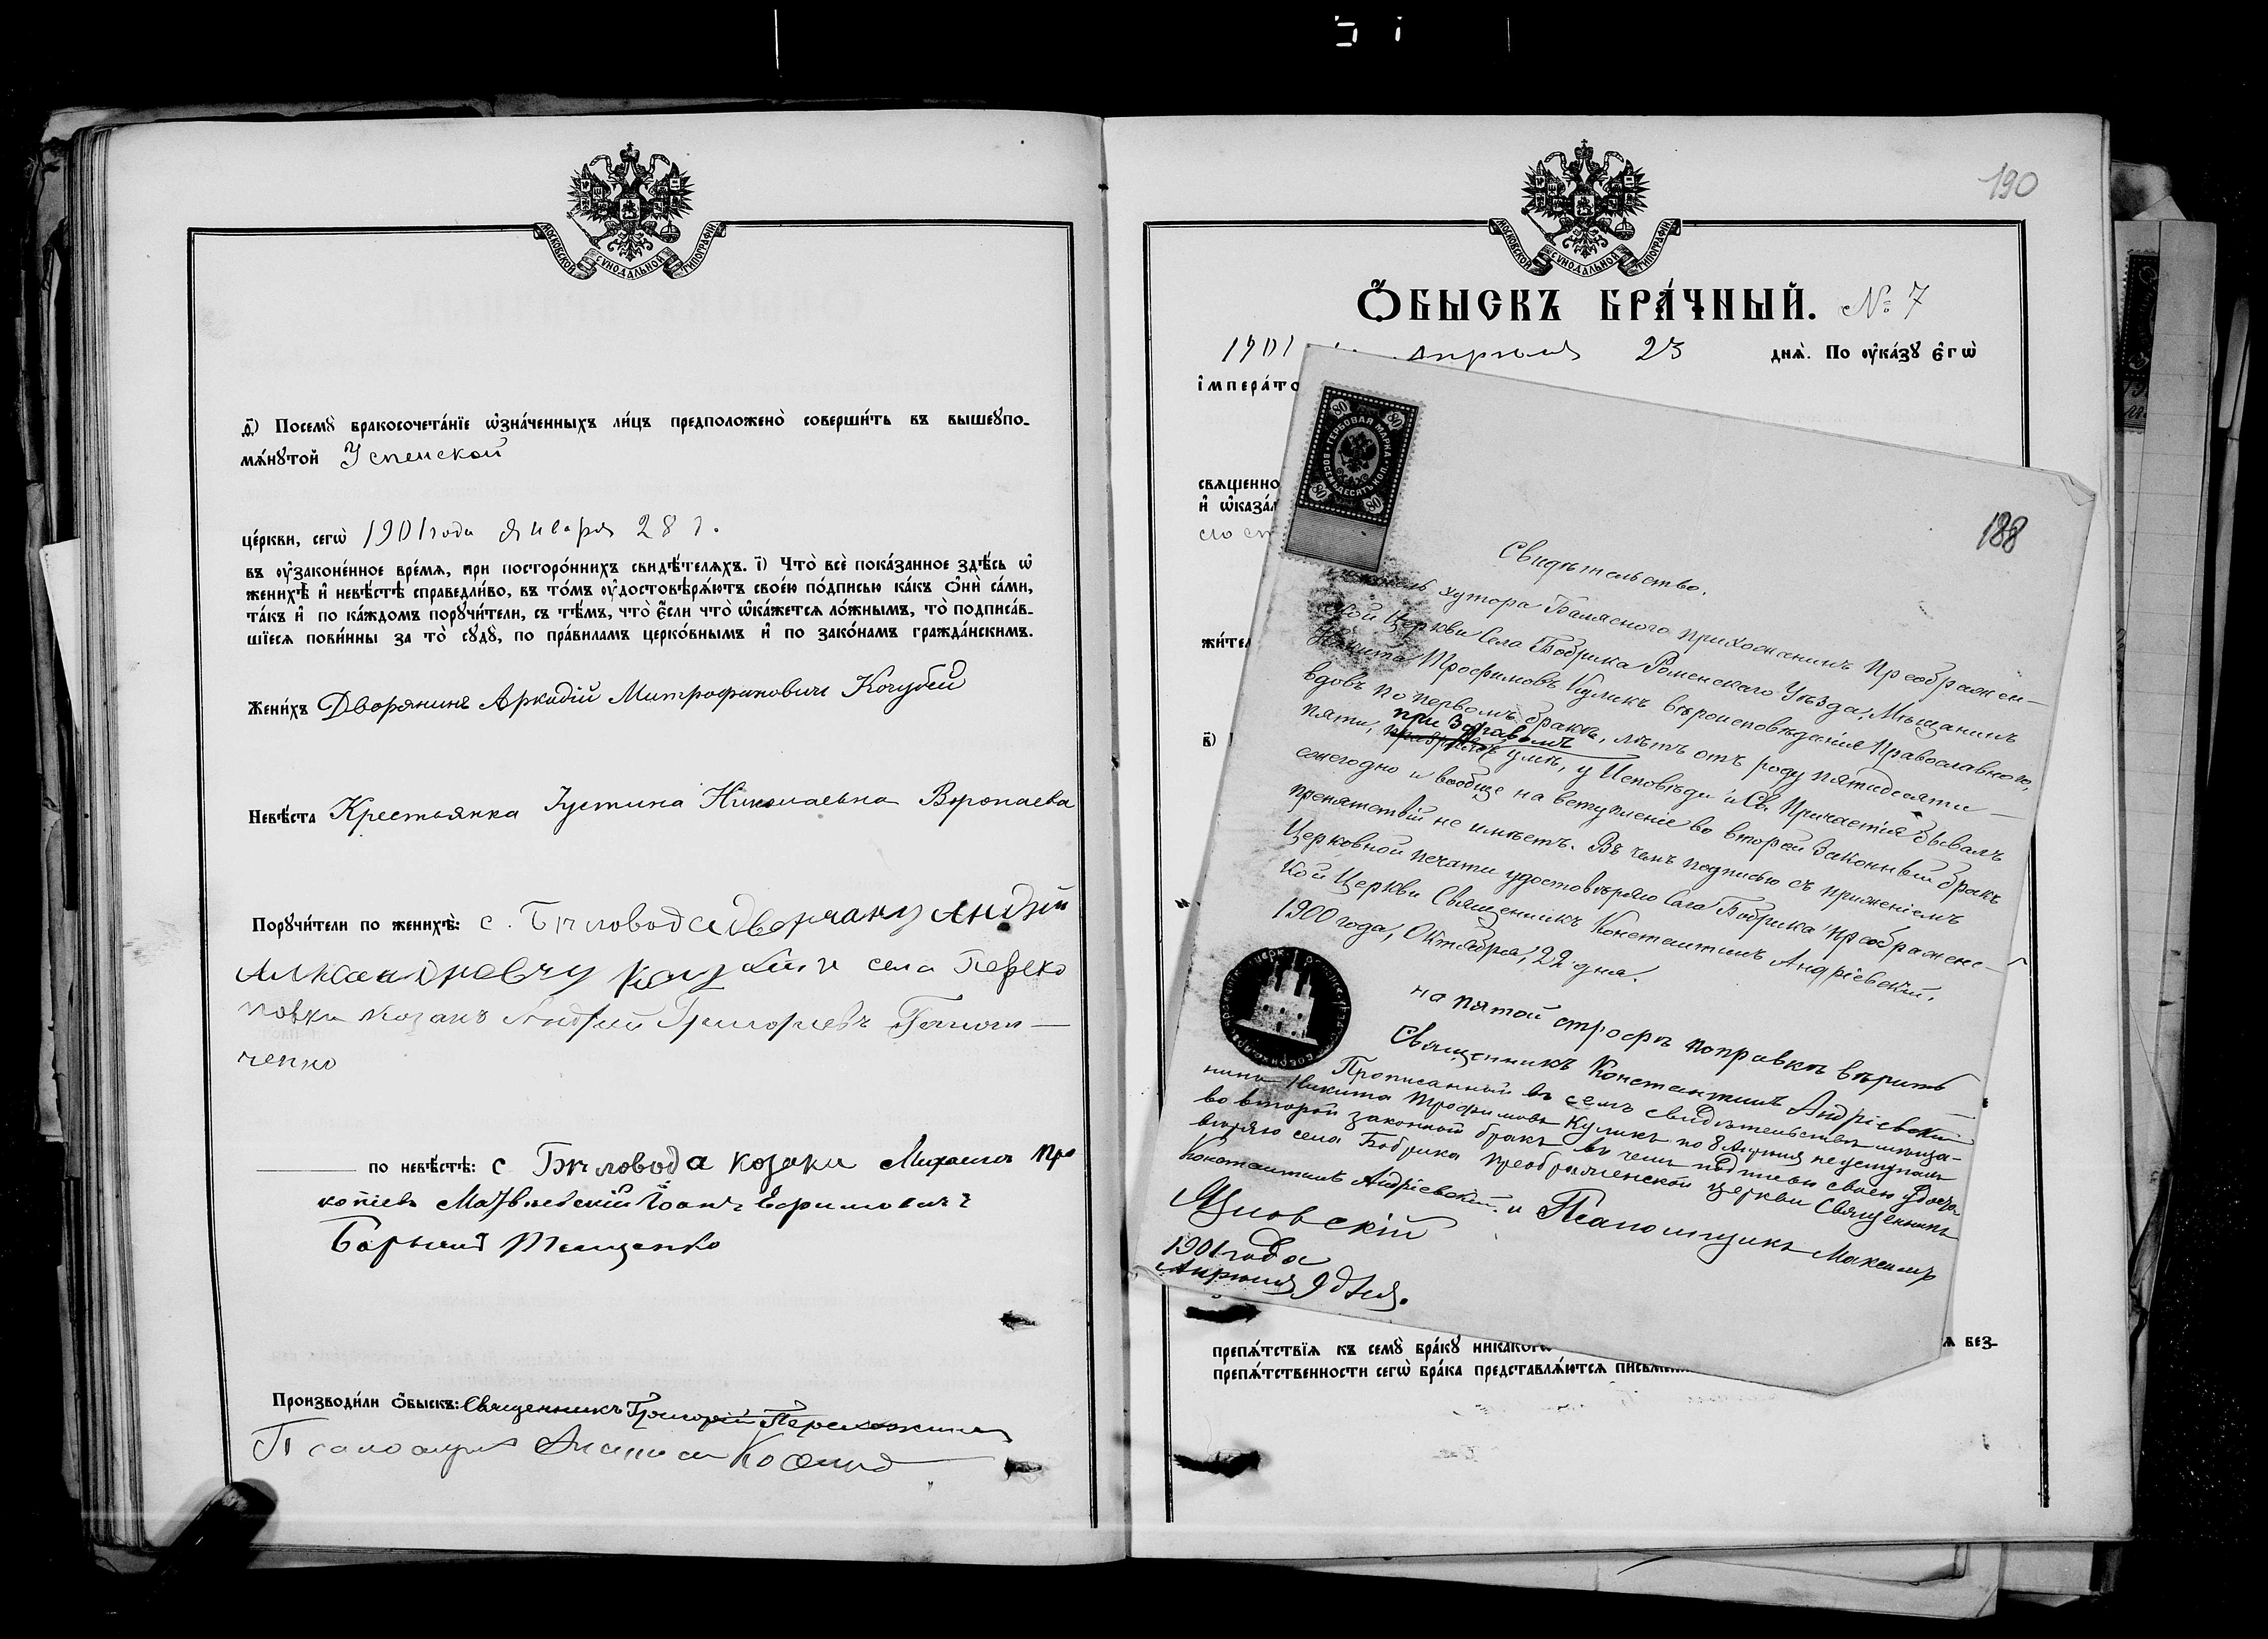 МОСКОВСКОЙ СѴНОДАЛЬНОЙ ТИПОГРАФІИ
ѳ҃) Посемꙋ̀ бракосочета́нїе ѡ҆зна́ченныхъ ли́цъ предположено̀ соверши́ть въ вышеꙋпо-
мѧ́нꙋтой Успенской
це́ркви, сегѡ̀ 1901 года Января 28 д.
въ оу҆законе́нное вре́мѧ, при посторо́ннихъ свидѣ́телѧхъ. і҃) Что̀ всѐ пока́занное здѣ́сь ѡ҆
женихѣ̀ и҆ невѣ́стѣ справедли́во, въ то́мъ оу҆достовѣрѧ́ютъ свое́ю по́дписью ка́къ ѻ҆нѝ са́ми,
та́къ и҆ по ка́ждомъ порꙋчи́тели, съ тѣ́мъ, что̀ є҆́сли что̀ ѡ҆ка́жетсѧ ло́жнымъ, то̀ подписа́в-
шїесѧ пови́нны за то̀ сꙋдꙋ̀, по пра́виламъ церко́внымъ и҆ по зако́намъ гражда́нскимъ.
Жени́хъ Дворянинъ Аркадій Митрофановичъ Кочубей
Невѣ́ста Крестьянка Іустина Николаевна Воропаева
Порꙋчи́тели по женихѣ̀: с. Бѣловода дворянин Андрей
села Переко
повки козакъ Андрей Григорьевъ
ченко
по невѣ́стѣ: с Бѣловода козаки Михаилъ Про
копіевъ Матвѣевскій Іоанъ Ефимовичъ
Терещенко
Производи́ли ѻ҆́быскъ: Священникъ Григорій
Псаломщикъ
190
МОСКОВСКОЙ СѴНОДАЛЬНОЙ ТИПОГРАФІИ
Ѻ҆́БЫСКЪ БРА́ЧНЫЙ. № 7
1901 апрѣля 23 днѧ̀. По оу҆ка́зꙋ є҆гѡ̀
і҆мпера́то
свѧщенно
и҆ ѡ҆каза́л
жител
в҃)
ГЕРБОВАЯ МАРКА
ВОСЕМЬДЕСЯТЪ КОП.
80 80 80 80
188
Свидѣтельство.
хутора Балясного прихожанинъ Преображен-
ской Церкви Села Бобрика Роменскаго Уѣзда, Мѣщанинъ
Никита Трофимовъ Куликъ вѣроисповѣданія Православнаго,
вдовъ по первомъ бракѣ, лѣтъ отъ роду пятидесяти
при здравомъ
пяти, умѣ, у Исповѣди и Св. Причастія бывалъ
ежегодно и вообще на вступленіе во второй Законный бракъ
препятствій не имѣетъ. Въ чемъ подписью съ приложеніемъ
Церковной печати удостовѣряю Села Бобрика Преображенс-
кой Церкви Священникъ Константинъ Андріевскій.
1900 года, Октября, 22 дня.
на пятой строфѣ поправкѣ вѣрить
Священникъ Константинъ Андріевскій
Прописанный въ семъ свидѣтельствѣ мѣща-
нинъ Никита Трофимовъ Куликъ по 8 Апрѣля не вступалъ
во второй законный бракъ въ чемъ подписью своею удосто
вѣряю села Бобрика Преображенской церкви Священникъ
Константинъ Андріевскій. и Псаломщикъ Максимъ
Яновскій
1901 года
Апрѣля 9 дня.
препѧ́тствїѧ къ семꙋ̀ бра́кꙋ никако́гѡ
ѧ без-
препѧ́тственности сегѡ̀ бра́ка представлѧ́ютсѧ письме